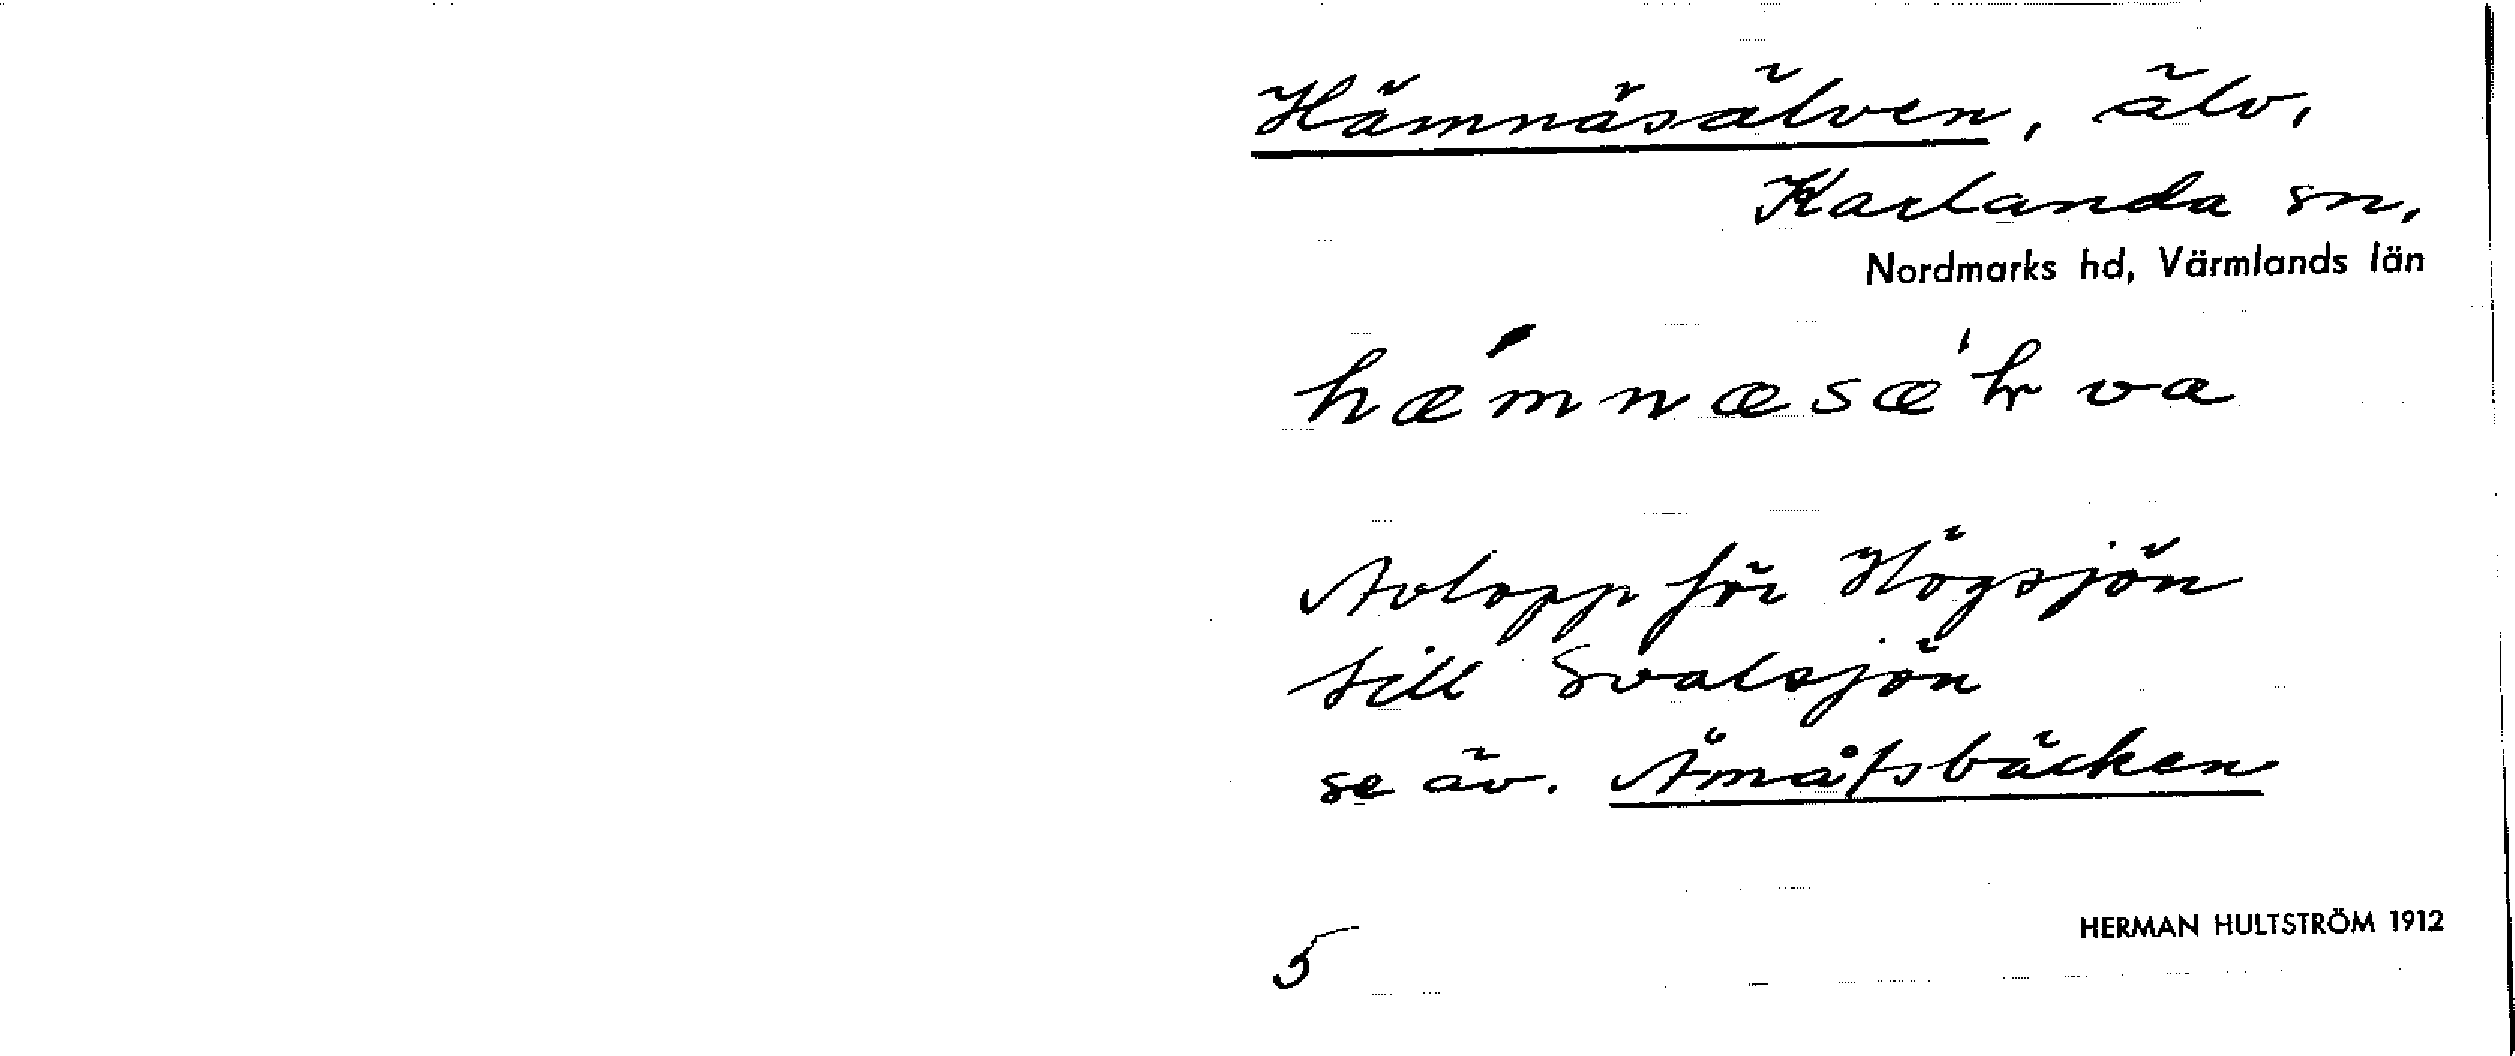 Hämnäsälven, älv,
Karlanda sn,
Nordmarks hd, Värmlands län
Avlopp för Högsjön
till Svalsjön
se äv.
5
HERMAN HULTSTRÖM 1912